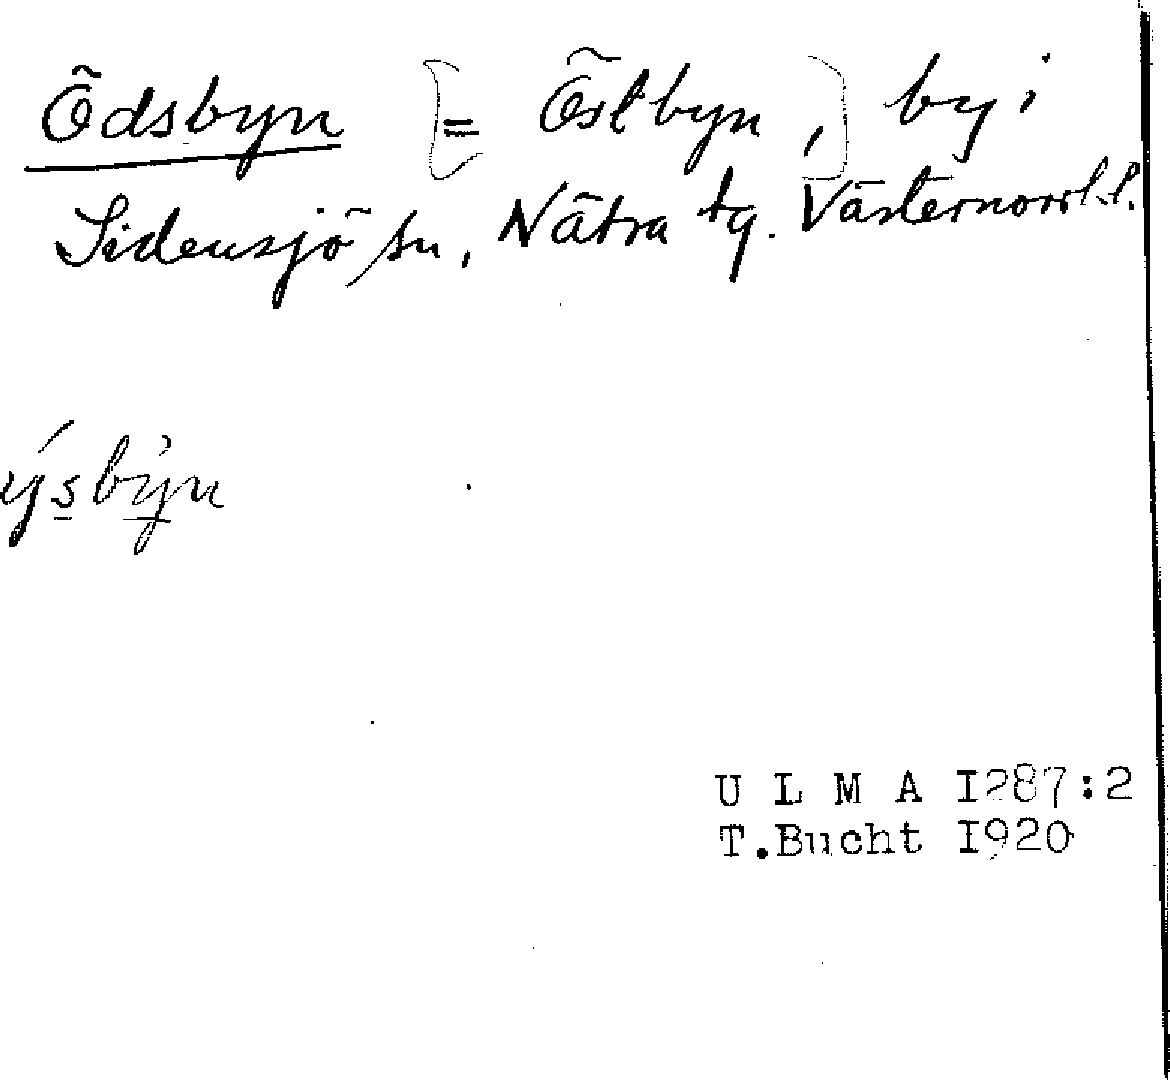 Ödsbyn [= Östbyn,] by i
Sidensjö sn, Nätra tg. Västernorrl.l.
ýsbyn
U L M A I287:2
T.Bucht I920